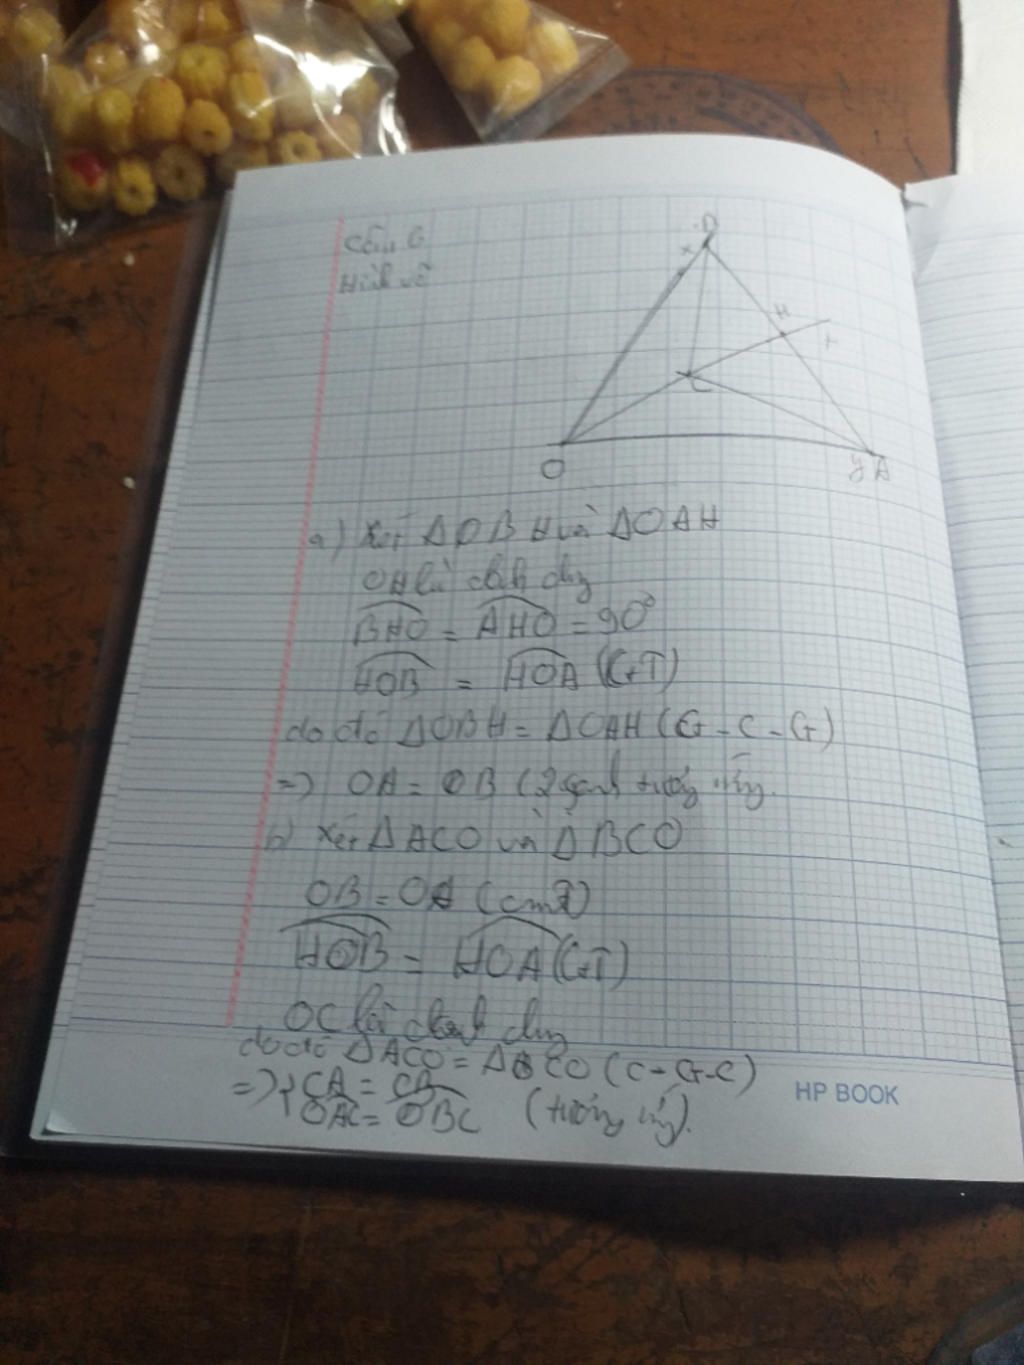 Câu 6
Hình vẽ
B
x
H
t
C
O
y A
a) Xét ΔOBH và ΔOAH
OH là cạnh chung
BHO = AHO = 90°
HOB = HOA (GT)
do đó ΔOBH = ΔOAH (G - C - G)
=> OA = OB (2 cạnh tương ứng
b) Xét ΔACO và ΔBCO
OB = OA (cmt)
HOB = HOA (GT)
OC là cạnh chung
do đó ΔACO = ΔBCO (C-G-C)
=> { CA = CB
OAC = OBC (tương ứng).
HP BOOK